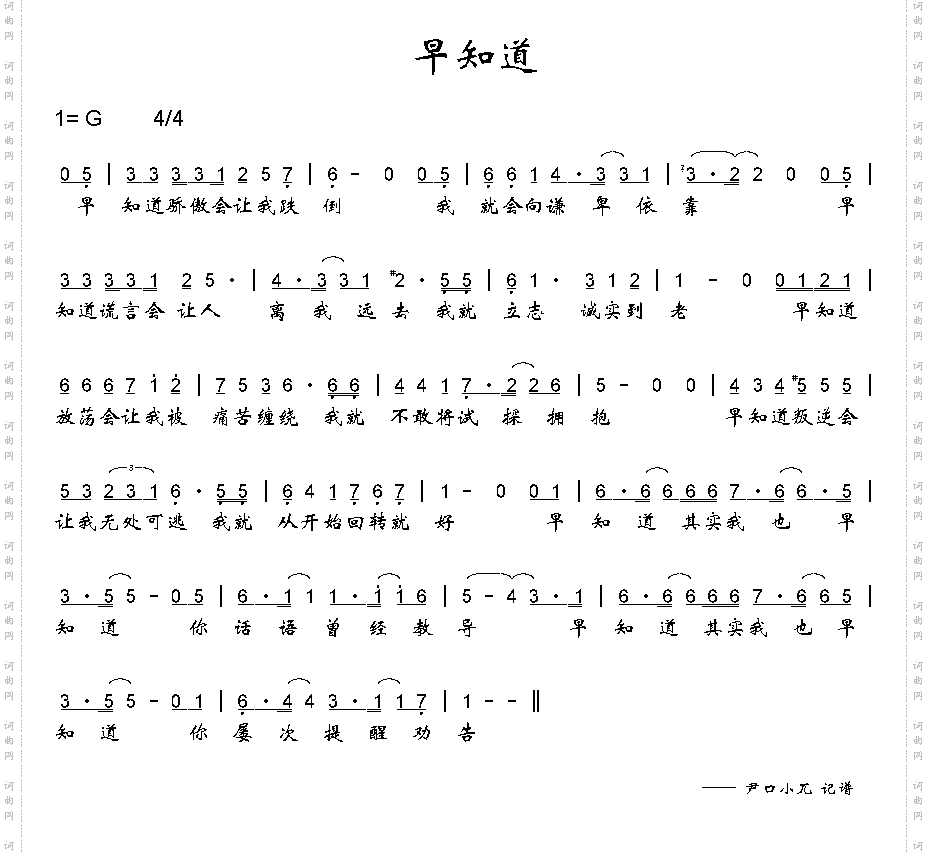 早知道
1= G 4/4
0 5 | 3 3 3 3 1 2 5 7 | 6 - 0 0 5 | 6 6 1 4 · 3 3 1 | 2 3 · 2 2 0 0 5 |
早 知道骄傲会让我跌 倒 我 就会向谦 卑 依 靠 早
3 3 3 3 1 2 5 · | 4 · 3 3 1 #2 · 5 5 | 6 1 · 3 1 2 | 1 - 0 0 1 2 1 |
知道谎言会 让人 离 我 远 去 我就 立志 诚实到 老 早知道
6 6 6 7 1 2 | 7 5 3 6 · 6 6 | 4 4 1 7 · 2 2 6 | 5 - 0 0 | 4 3 4 #5 5 5 |
放荡会让我被 痛苦缠绕 我就 不敢将试 探 拥 抱 早知道叛逆会
5 3 2 3 1 6 · 5 5 | 6 4 1 7 6 7 | 1 - 0 0 1 | 6 · 6 6 6 6 7 · 6 6 · 5 |
3
让我无处可逃 我就 从开始回转就 好 早 知 道 其实我 也 早
3 · 5 5 - 0 5 | 6 · 1 1 1 · 1 1 6 | 5 - 4 3 · 1 | 6 · 6 6 6 6 7 · 6 6 5 |
知 道 你 话 语 曾 经 教 导 早 知 道 其实我 也 早
3 · 5 5 - 0 1 | 6 · 4 4 3 · 1 1 7 | 1 - - ‖
知 道 你 屡 次 提 醒 劝 告
—— 尹口小兀 记谱
词曲网